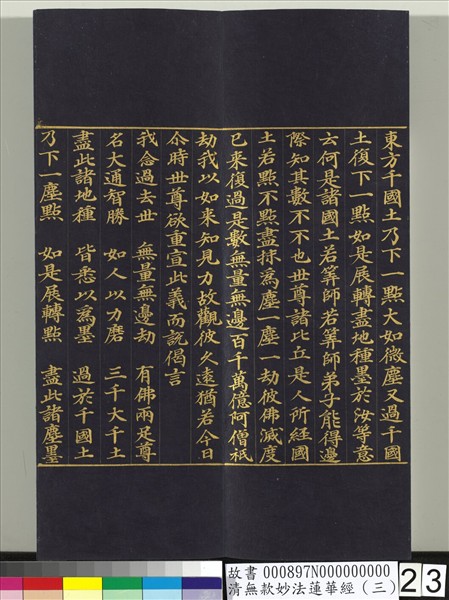 東方千國土乃下一點大如微塵又過千國
土復下一點如是展轉盡地種墨於汝等意
云何是諸國土若筭師若筭師弟子能得邊
際知其數不不也世尊諸比丘是人所經國
土若點不點盡抹為塵一塵一劫彼佛滅度
已來復過是數無量無邊百千萬億阿僧祇
劫我以如來知見力故觀彼久遠猶若今日
尒時世尊欲重宣此義而說偈言
我念過去世 無量無邊劫 有佛兩足尊
名大通智勝 如人以力磨 三千大千土
盡此諸地種 皆悉以為墨 過於千國土
乃下一塵點 如是展轉點 盡此諸塵墨
故書 000897N000000000
清無款妙法蓮華經（三）
23